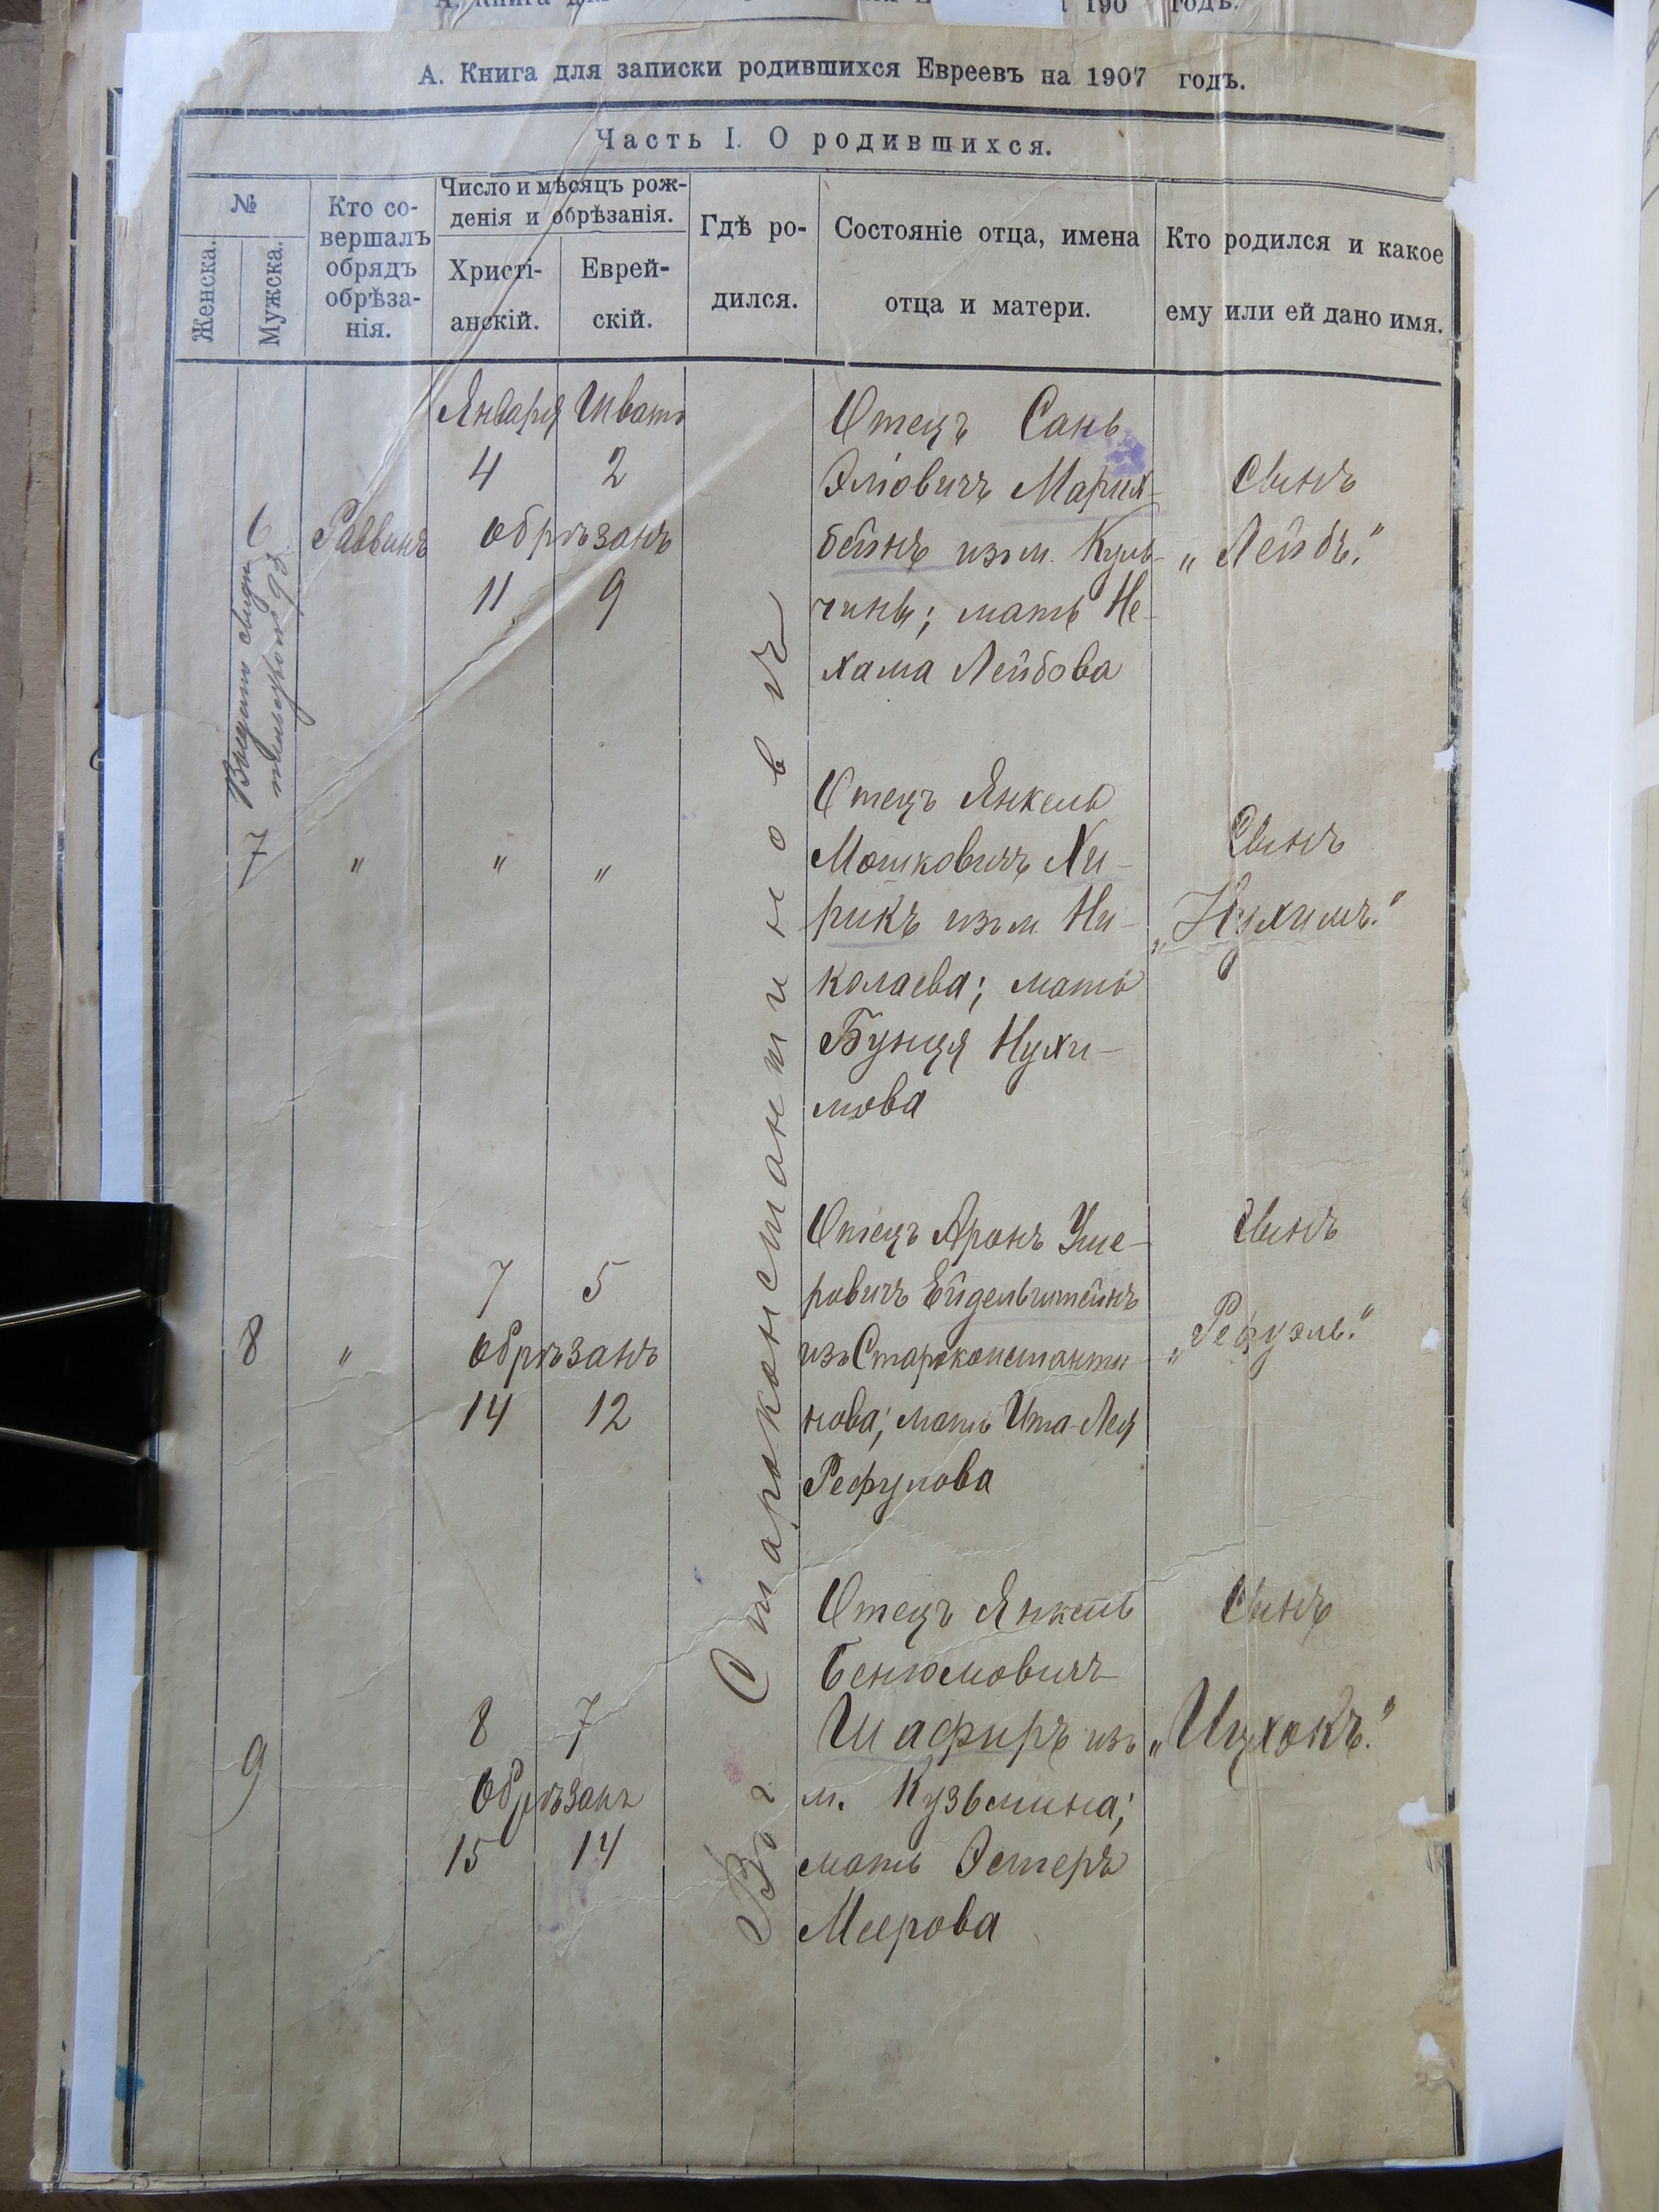 А. Книга для записки родившихся Евреевъ на 1907 годъ.
Часть I. О родившихся.
№
Женска.
Мужска.
Кто со-
вершалъ
обрядъ
обрѣза-
нія.
Число и мѣсяцъ рож-
денія и обрѣзанія.
Христі-
анскій.
Еврей-
скій.
Гдѣ ро-
дился.
Состояніе отца, имена
отца и матери.
Кто родился и какое
ему или ей дано имя.
Въ г. Староконстантиновѣ
6
Раввинъ
Января Шватъ
4 2
обрѣзанъ
11 9
Отецъ Сань
Эліовичъ Мариж-
бейнъ изъ м. Куль-
чинъ; мать Не-
хама Лейбова
Сынъ
„Лейбъ."
7 " " "
Отецъ Янкель
Мошковичъ Хи-
рикъ изъ м. Ни-
колаева; мать
Бунця Нухи-
мова
Сынъ
„Нухимъ."
8 "
7 5
обрѣзанъ
14 12
Отецъ Аронъ Уше-
ровичъ Ейдельштейнъ
изъ Староконстанти-
нова; мать Ита-Лея
Рефулова
Сынъ
„Рефуэль."
9
8 7
обрѣзанъ
15 14
Отецъ Янкель
Бенюмовичъ
Шафиръ изъ
м. Кузьмина;
мать Эстеръ
Меерова
Сынъ
„Ицхокъ."